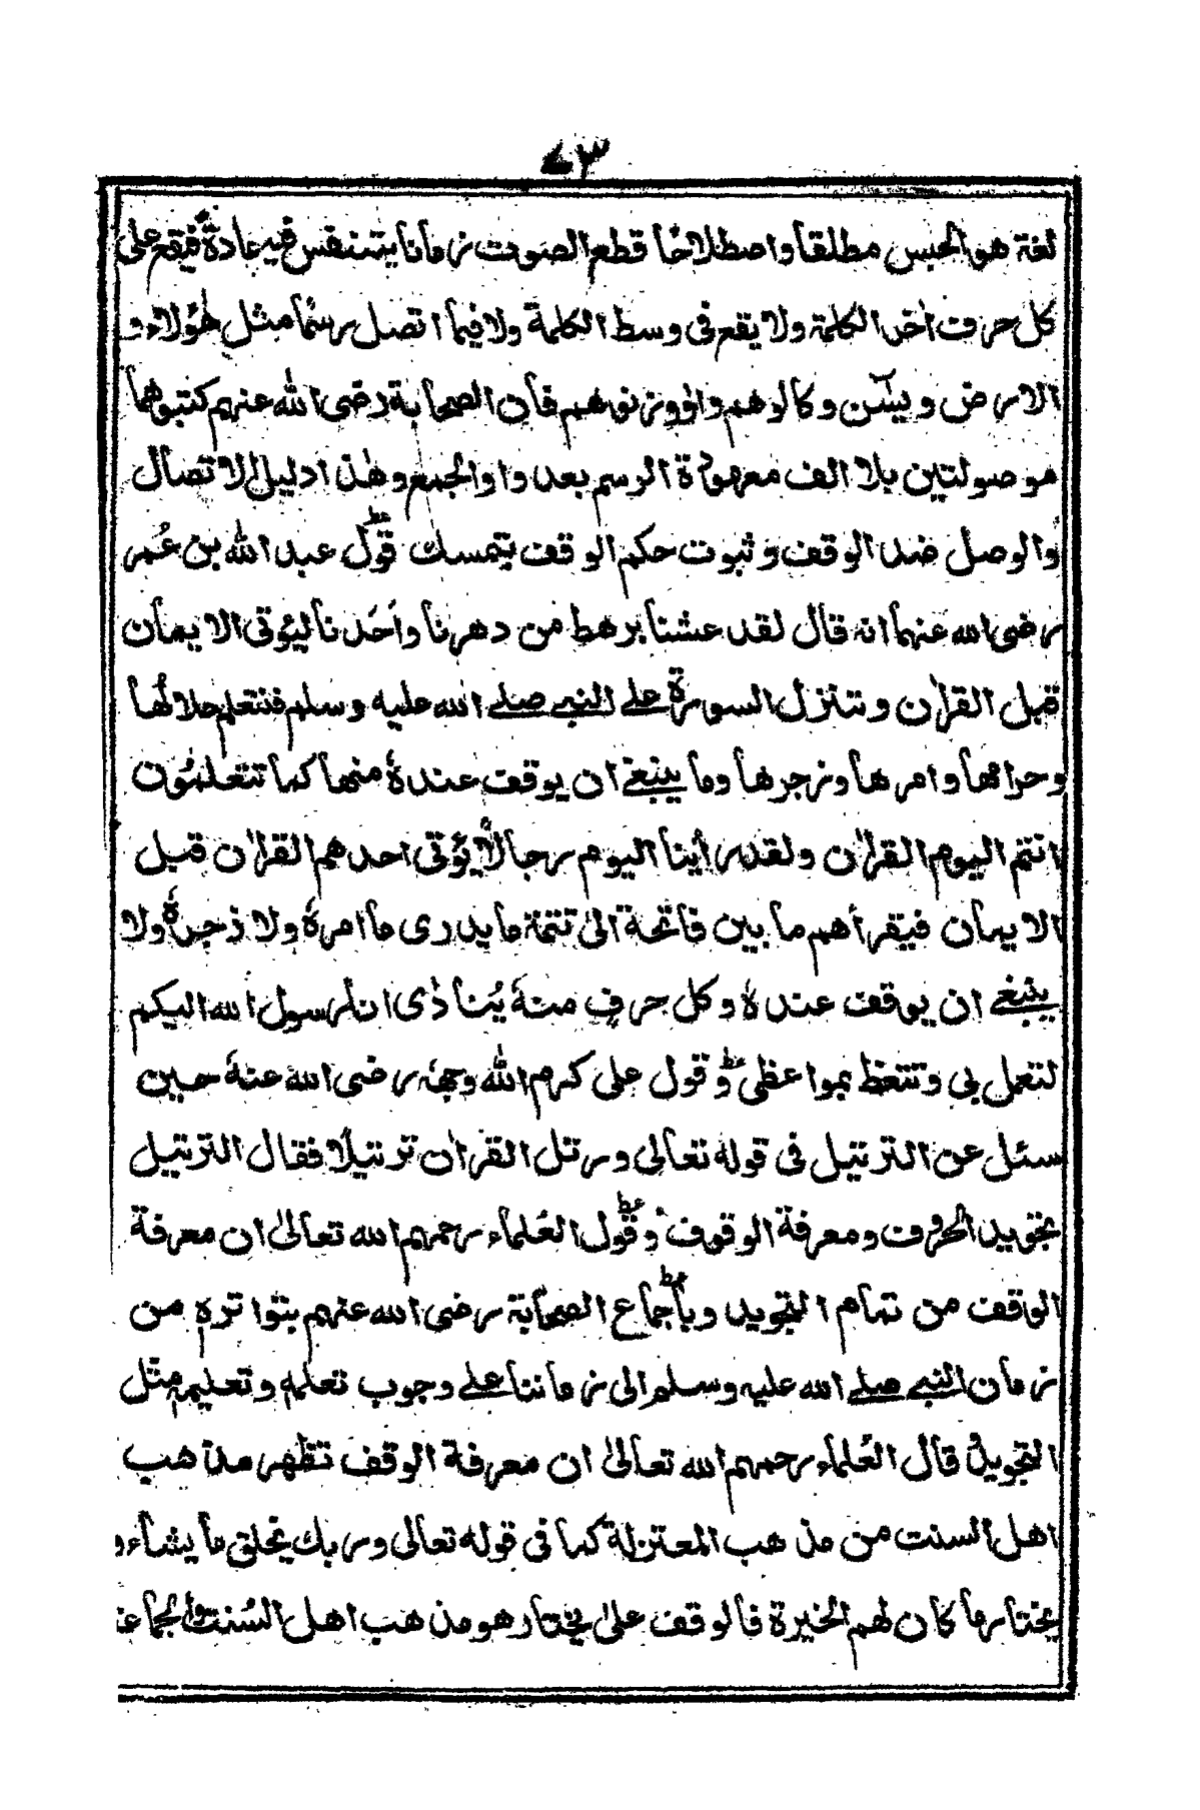 ٧٣
لغة هو الحبس مطلقا واصطلاحًا قطع الصوت زمانا يتنفس فيه عادة فيقع على
كل حرف اٰخر الكلمة ولا يقع فى وسط الكلمة ولا فيما اتصل رسمًا مثل هٰؤلاء و
الارض و يٰسٓن وكالوهم واووزنوهم فان الصحابة رضى الله عنهم كتبوهما
موصولتين بلا الف معهودة الرسم بعد واو الجمع وهٰذا دليل الاتصال
والوصل ضد الوقف و ثبوت حكم الوقف يتمسك قول عبد الله بن عُمر
رضى الله عنهما انه قال لقد عشنا برهط من دهرنا واَحَدنا ليؤتى الايمان
قبل القراٰن و تتنزل السورة على النبى صلى الله عليه وسلم فنتعلم حلالُها
وحرامها وامرها وزجرها وما ينبغى ان يوقف عندهٗ منها كما تتعلمُون
انتم اليوم القراٰن ولقد رأينا اليوم رجالًا يؤتى احدهم القراٰن قبل
الايمان فيقرأهم ما بين فاتحة الىٰ تتمة ما يدرى ما امرهٗ ولا ذجرهٗ ولا
ينبغى ان يوقف عندهٗ وكل حرفٍ منهٗ يُنادٰى انا رسول الله اليكم
لتعمل بى وتتعظ بمواعظى و قول على كرم الله وجهہٗ رضى الله عنهٗ حين
سئل عن الترتيل فى قوله تعالى ورتل القراٰن ترتيلًا فقال الترتيل
تجويد الحروف ومعرفة الوقوف وقول العُلماء رحمهم الله تعالىٰ ان معرفة
الوقف من تمام التجويد وباجماع الصحابة رضى الله عنهم بتواتره من
زمان النبى صلى الله عليه وسلم الى زماننا على وجوب تعلمهٖ وتعليمهٖ مثل
التجويد قال العُلماء رحمهم الله تعالىٰ ان معرفة الوقف تظهر مذهب
اهل السنت من مذهب المعتزلة كما فى قوله تعالى وربك يخلق ما يشاء و
يختار ما كان لهم الخيرة فالوقف علىٰ يختار هو مذهب اهل السُنت والجماعة